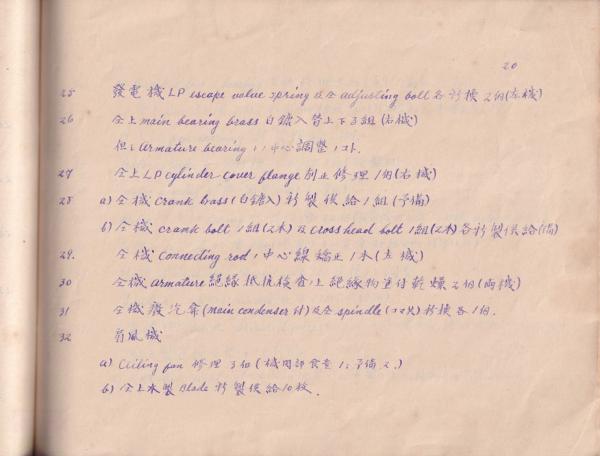 20
25 發電機 LP escape value spring 及仝 adjusting bolt 各新換 2個(左機)
26 仝上 main bearing brass 白鑞入替上下3組(右機)
但シ Armature bearing トノ中心調整ノコト.
27 仝上 LP cylinder cover flange 削正修理 1個(右機)
28 a) 仝機 crank brass (白鑞入) 新製供給 1組(予備)
b) 仝機 crank bolt 1組(2本) 及 cross head bolt 1組(2本) 各新製供給(備)
29. 仝機 connecting rod ノ中心線矯正 1本(左機)
30 仝機 armature 絕緣抵抗検查ノ上絕緣物塗付乾燥 2個(両機)
31 仝機 廢汽弇 (main condenser 付) 及仝 spindle (コマ共) 新換各1個.
32 扇風機
a) Ceiling fan 修理 3個(機関部食堂 1. 予備 2.)
b) 仝上木製 Blade 新製供給10枚.